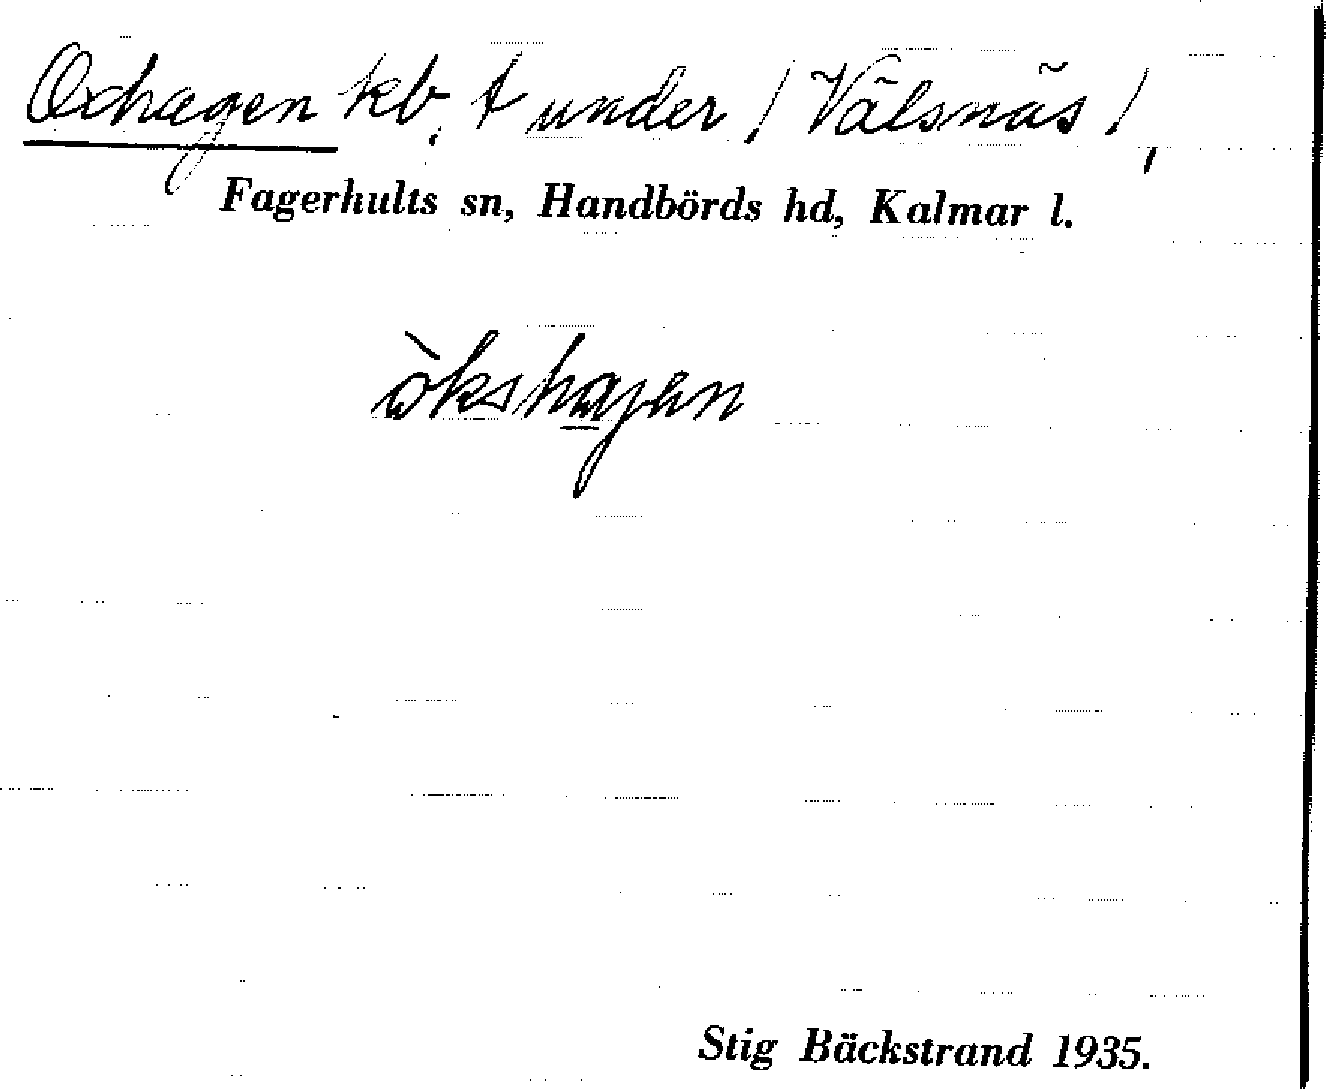 Oxhagen kb. t under / Välsnäs /,
Fagerhults sn, Handbörds hd, Kalmar l.
òkshagen
Stig Bäckstrand 1935.